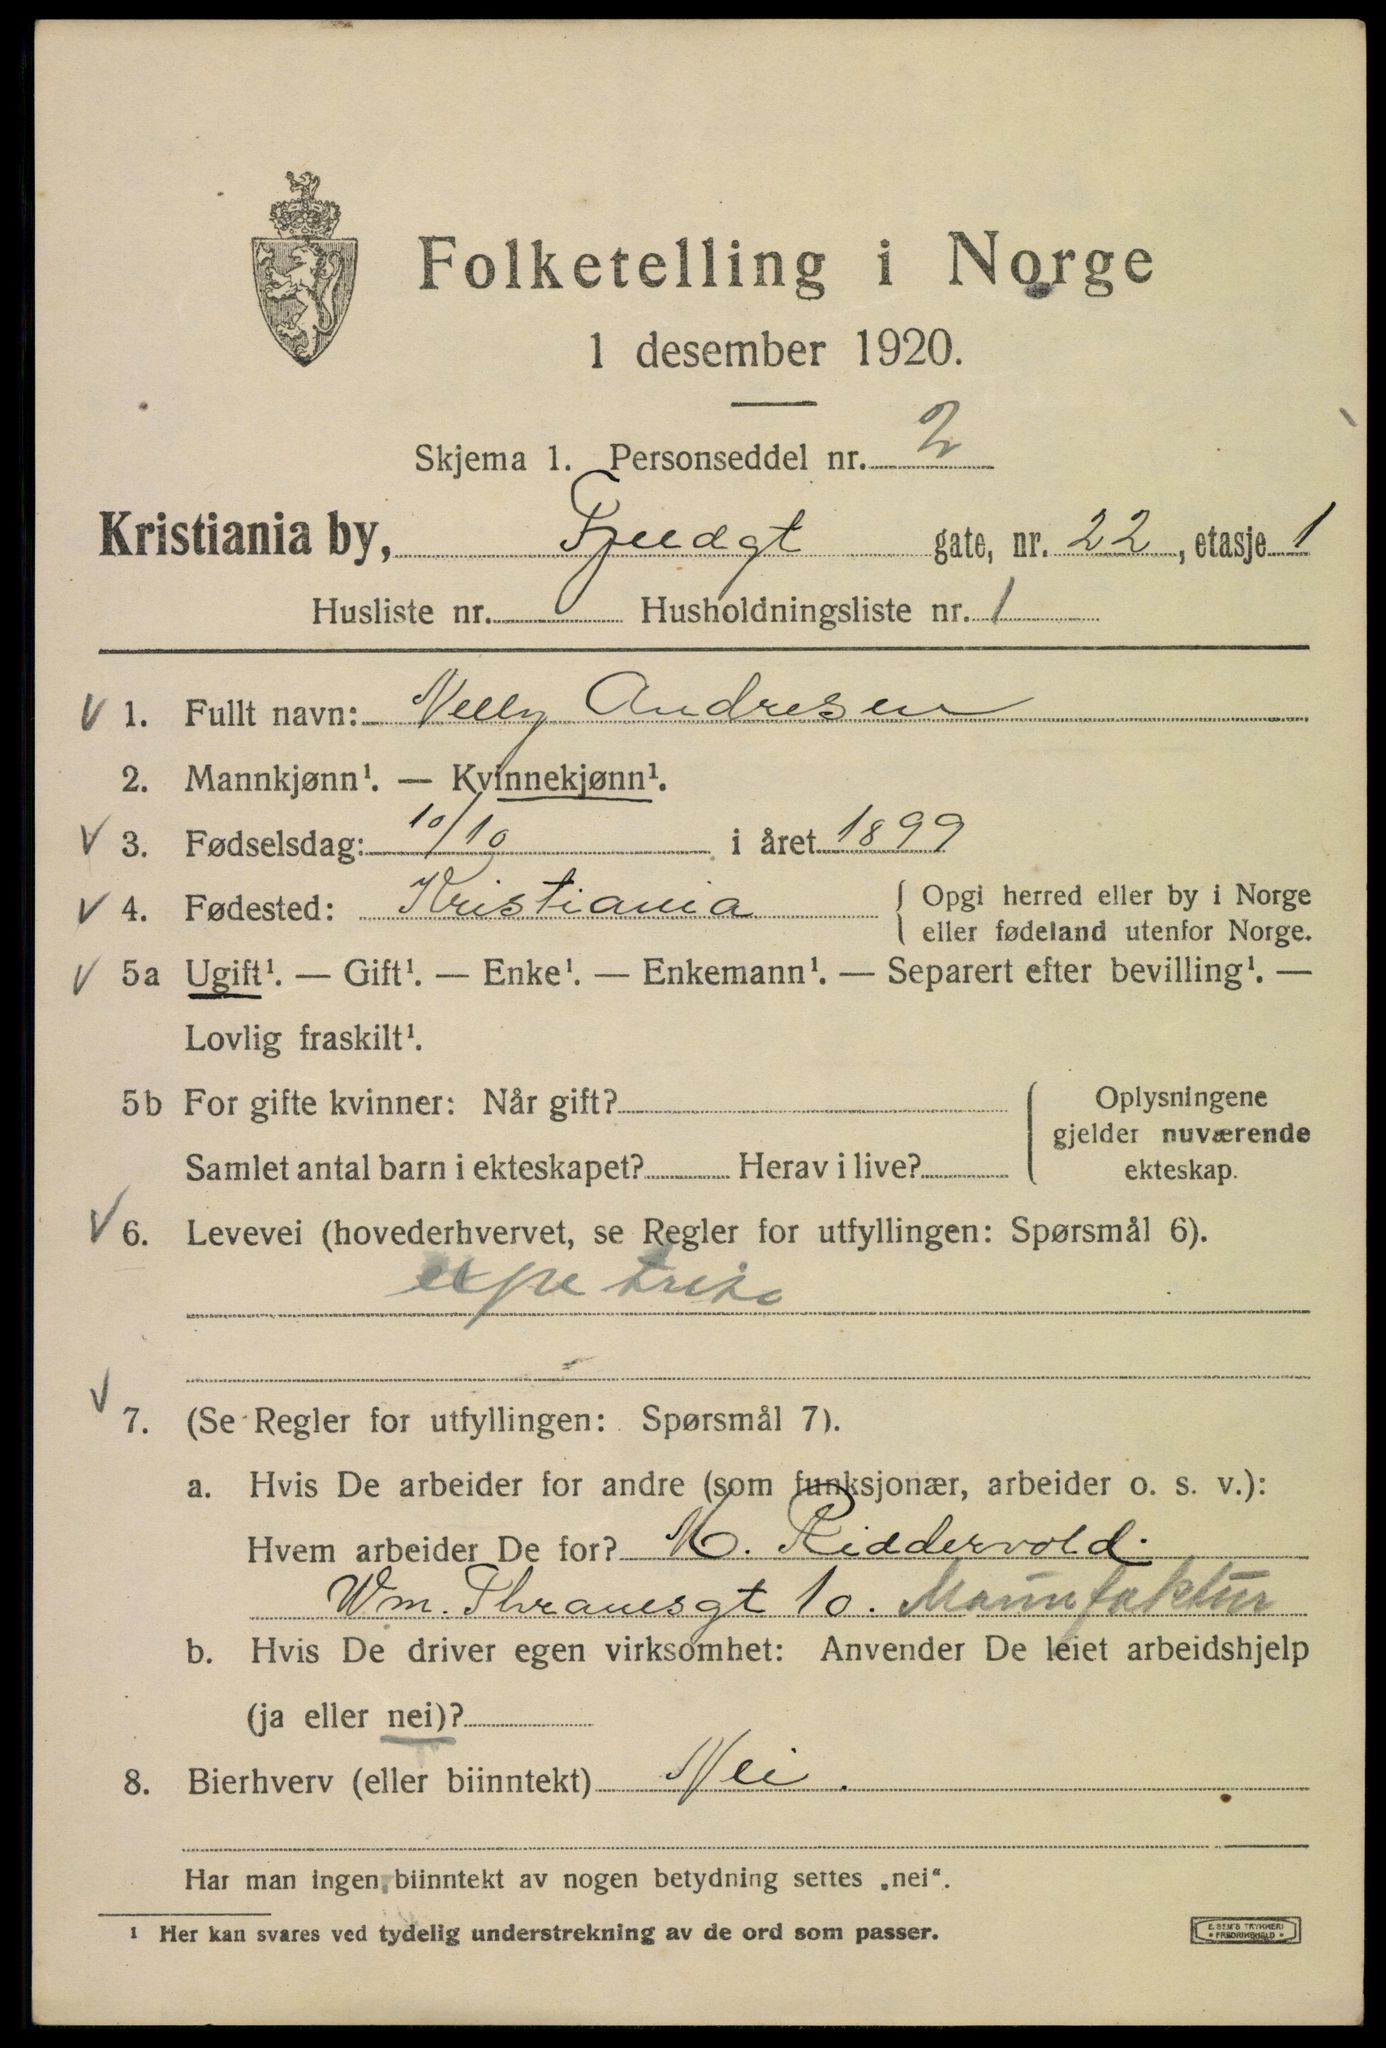 Folketelling i Norge
1 desember 1920.
Skjema 1. Personseddel nr. 2
Kristiania by, Fjeldgt gate, nr. 22, etasje 1
Husliste nr. Husholdningsliste nr. 1
V 1. Fullt navn: Nelly Andresen
2. Mannkjønn¹. — Kvinnekjønn¹.
V 3. Fødselsdag: 10/10 i året 1899
V 4. Fødested: Kristiania { Opgi herred eller by i Norge
eller fødeland utenfor Norge.
V 5a Ugift¹. — Gift¹. — Enke¹. — Enkemann¹. — Separert efter bevilling¹. —
Lovlig fraskilt¹.
5b For gifte kvinner: Når gift? { Oplysningene
gjelder nuværende
Samlet antal barn i ekteskapet? Herav i live? ekteskap.
V 6. Levevei (hovederhvervet, se Regler for utfyllingen: Spørsmål 6).
V 7. (Se Regler for utfyllingen: Spørsmål 7).
a. Hvis De arbeider for andre (som funksjonær, arbeider o. s. v.):
Hvem arbeider De for? M. Riddervold.
Wm. Thranesgt 10. Manufaktur
b. Hvis De driver egen virksomhet: Anvender De leiet arbeidshjelp
(ja eller nei)?
8. Bierhverv (eller biinntekt) Nei.
Har man ingen biinntekt av nogen betydning settes „nei“.
¹ Her kan svares ved tydelig understrekning av de ord som passer.
E. SEM'S TRYKKERI
• FREDRIKSHALD •